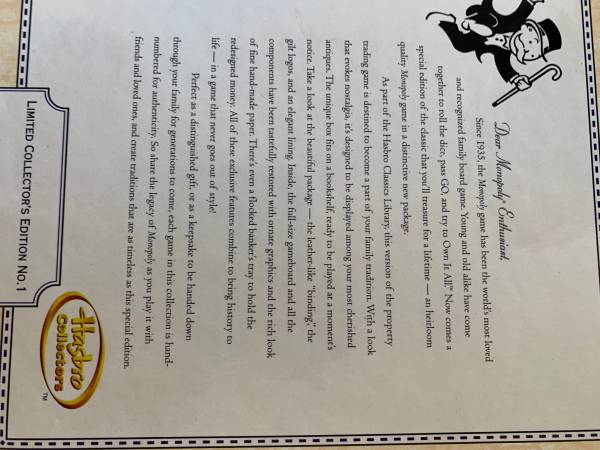 Dear Monopoly® Enthusiast,
Since 1935, the Monopoly game has been the world's most loved
and recognized family board game. Young and old alike have come
together to roll the dice, pass GO, and try to Own It All.™ Now comes a
special edition of the classic that you'll treasure for a lifetime — an heirloom
quality Monopoly game in a distinctive new package.
As part of the Hasbro Classics Library, this version of the property
trading game is destined to become a part of your family tradition. With a look
that evokes nostalgia, it's designed to be displayed among your most cherished
antiques. The unique box fits on a bookshelf, ready to be played at a moment's
notice. Take a look at the beautiful package — the leather-like "binding," the
gilt logos, and an elegant lining. Inside, the full-size gameboard and all the
components have been tastefully restored with ornate graphics and the rich look
of fine hand-made paper. There's even a flocked banker's tray to hold the
redesigned money. All of these exclusive features combine to bring history to
life — in a game that never goes out of style!
Perfect as a distinguished gift, or as a keepsake to be handed down
through your family for generations to come, each game in this collection is hand-
numbered for authenticity. So share the legacy of Monopoly as you play it with
friends and loved ones, and create traditions that are as timeless as this special edition.
LIMITED COLLECTOR'S EDITION NO.1
Hasbro
Collectors™